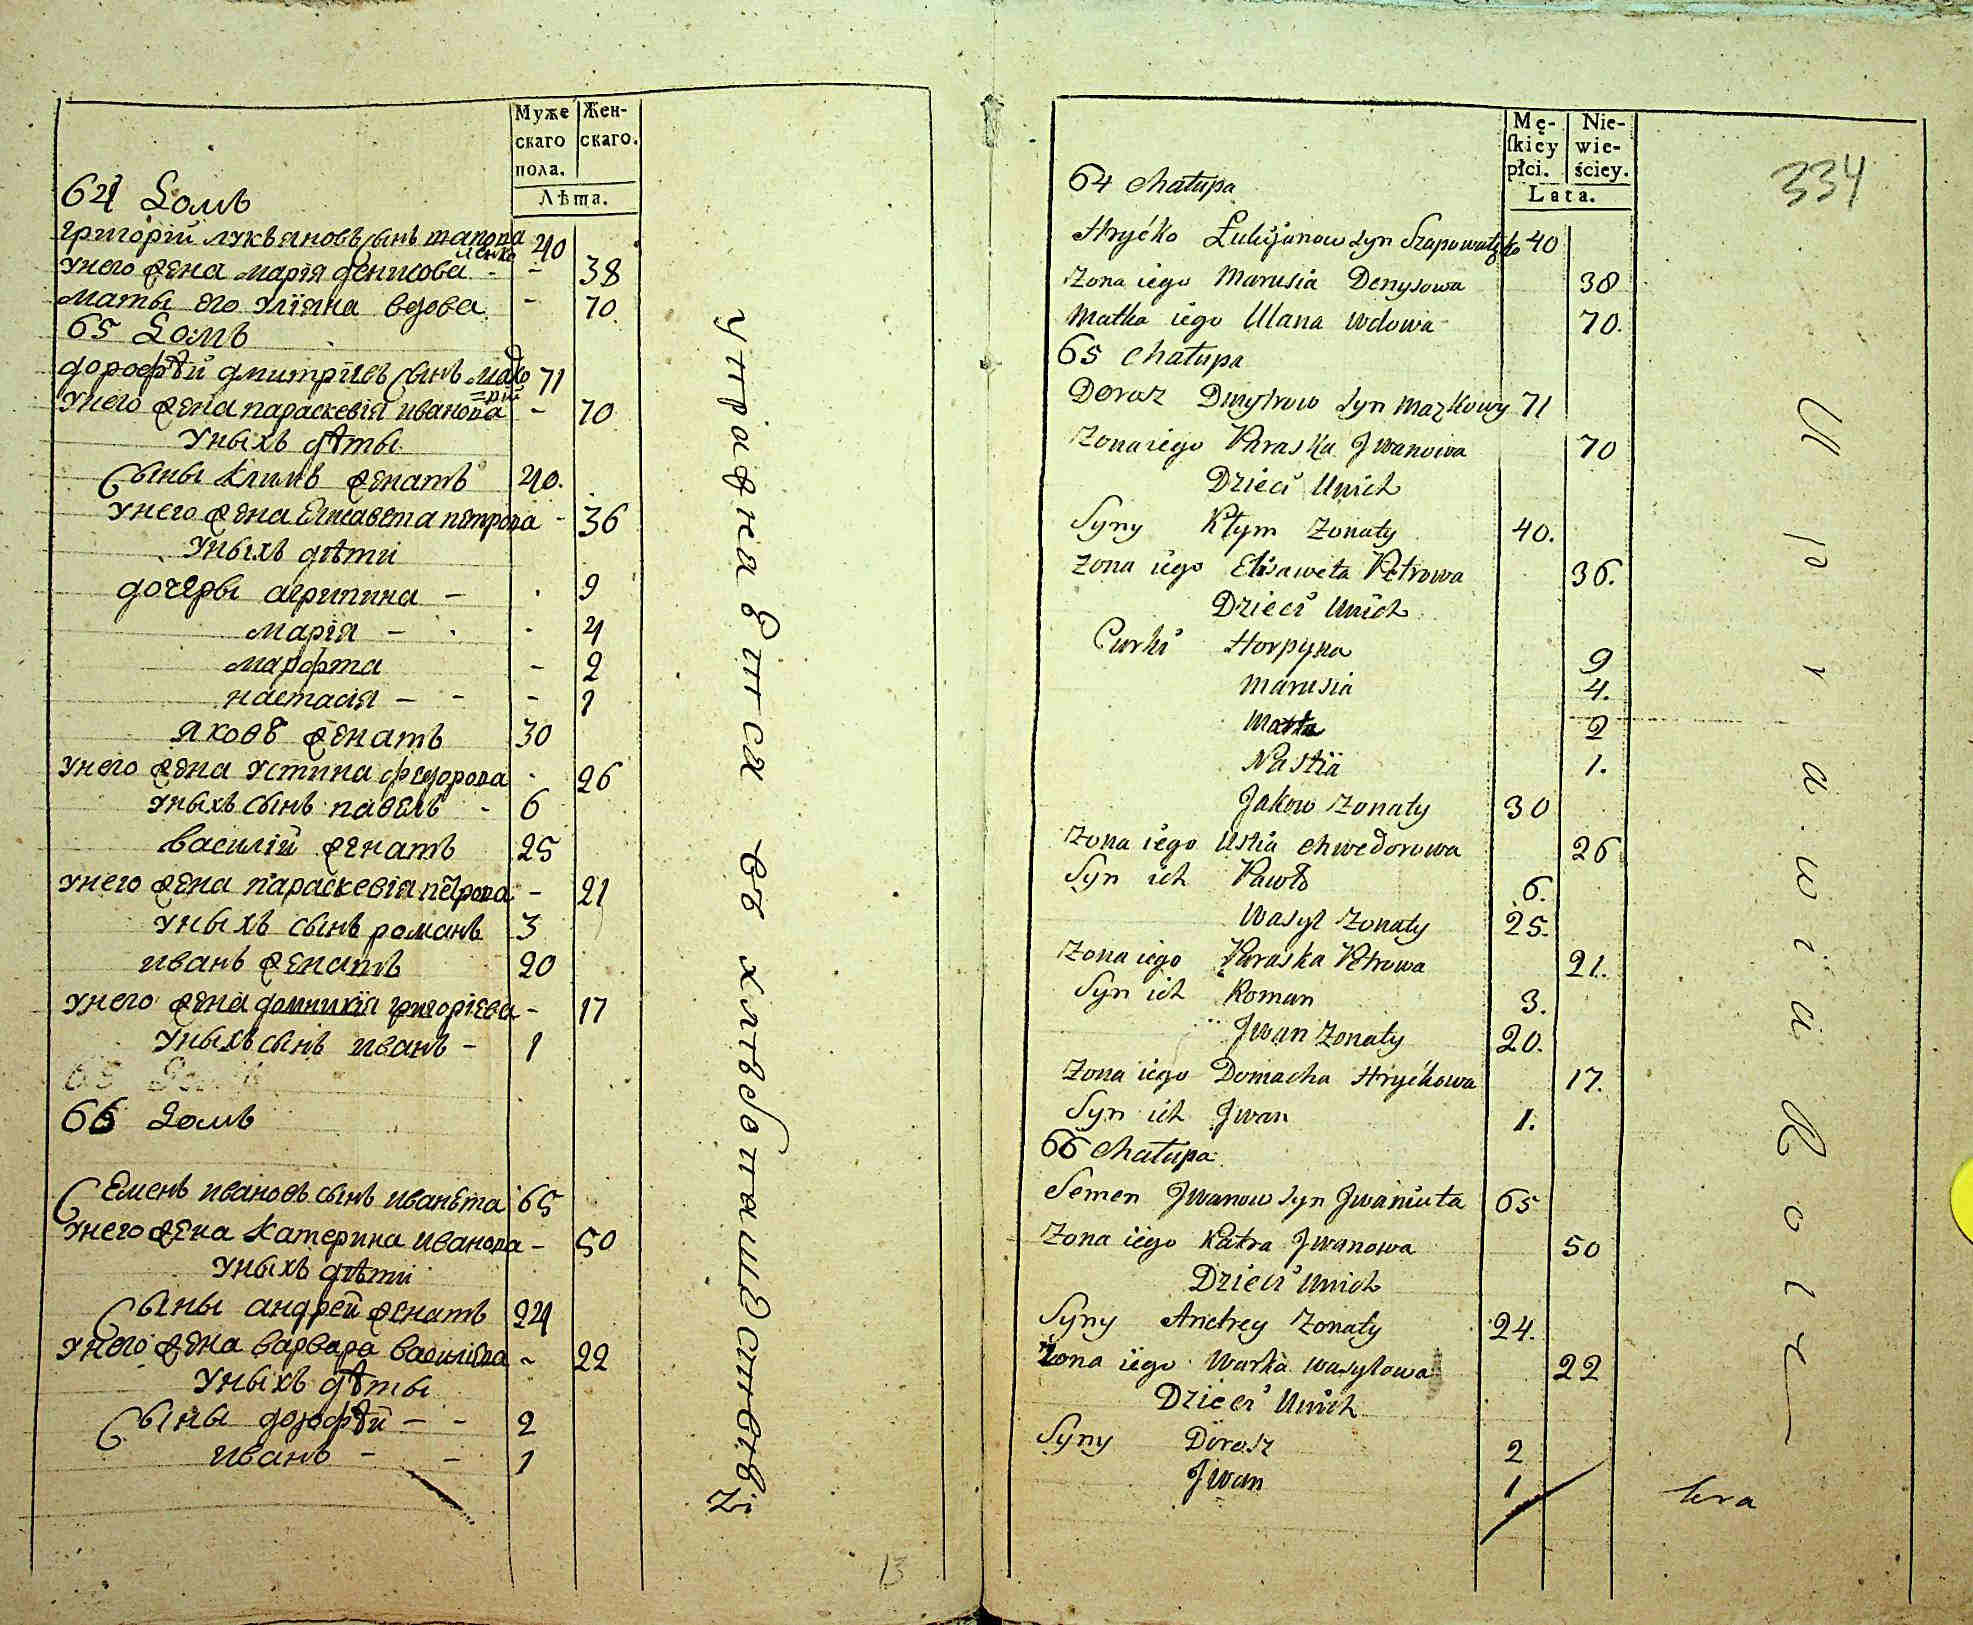 Муже
скаго
пола.
Жен-
скаго.
Лѣта.
64 Домъ
григорій лукъяновъ сынъ шапова
ленко 40
унего жена марія денисова - - 38
маты его уліяна вдова - 70
65 Домъ
дорофѣй дмитріевъ сынъ 71
унего жена параскевія иванова - 70
уныхъ дѣты
Сыны климъ женатъ 40.
унего жена Елисавета петрова - 36
уныхъ дѣти
дочеры агрипина - 9
марія - 4
марфта - 2
настасія - - - 1
яковъ женатъ 30
унего жена устина федорова 26
уныхъ сынъ павелъ - 6
василій женатъ 25
унего жена параскевія петрова - 21
уныхъ сынъ романъ 3
иванъ женатъ 20
унего жена домникія григоріева - 17
уныхъ сынъ иванъ - 1
66 Домъ
Семенъ ивановъ сынъ иванюта 65
унего жена катерина иванова - 50
уныхъ дѣти
Сыны андрей женатъ 24
унего жена варвара василіева - 22
уныхъ дѣты
Сыны дорофѣй - - 2
иванъ - - 1
упражнаются въ хлѣбопашественѣ
13
Mę-
ſkiey
płci.
Nie-
wie-
ściey.
Lata.
334
64 Chałupa
Hryćko Łukijanow syn Szapowałenko 40
Zona iego Marusia Denysowa 38
Matka iego Ulana wdowa 70.
65 Chałupa
Dorosz Dmytrow syn Mazkowy 71
Zona iego Paraska Jwanowa 70
Dzieci Unich
Syny Kłym Zonaty 40.
Zona iego Elisaweta Petrowa 36.
Dzieci Unich
Curki Horpyna 9
Marusia 4.
Marta 2
Nastia 1.
Jakow Zonaty 30
Zona iego Ustia Chwedorowa 26
Syn ich Pawło 6.
Wasyl Zonaty 25.
Zona iego Paraska Petrowa 21.
Syn ich Roman 3.
Jwan Zonaty 20.
Zona iego Domacha Hryćkowa 17.
Syn ich Jwan 1.
66 Chałupa
Semen Jwanow syn Jwaniuta 65
Zona iego Katra Jwanowa 50
Dzieci Unich
Syny Andrey Zonaty 24.
Zona iego Warka Wasylowa 22
Dzieci Unich
Syny Dorosz 2
Jwan 1
Uprawia Rolę